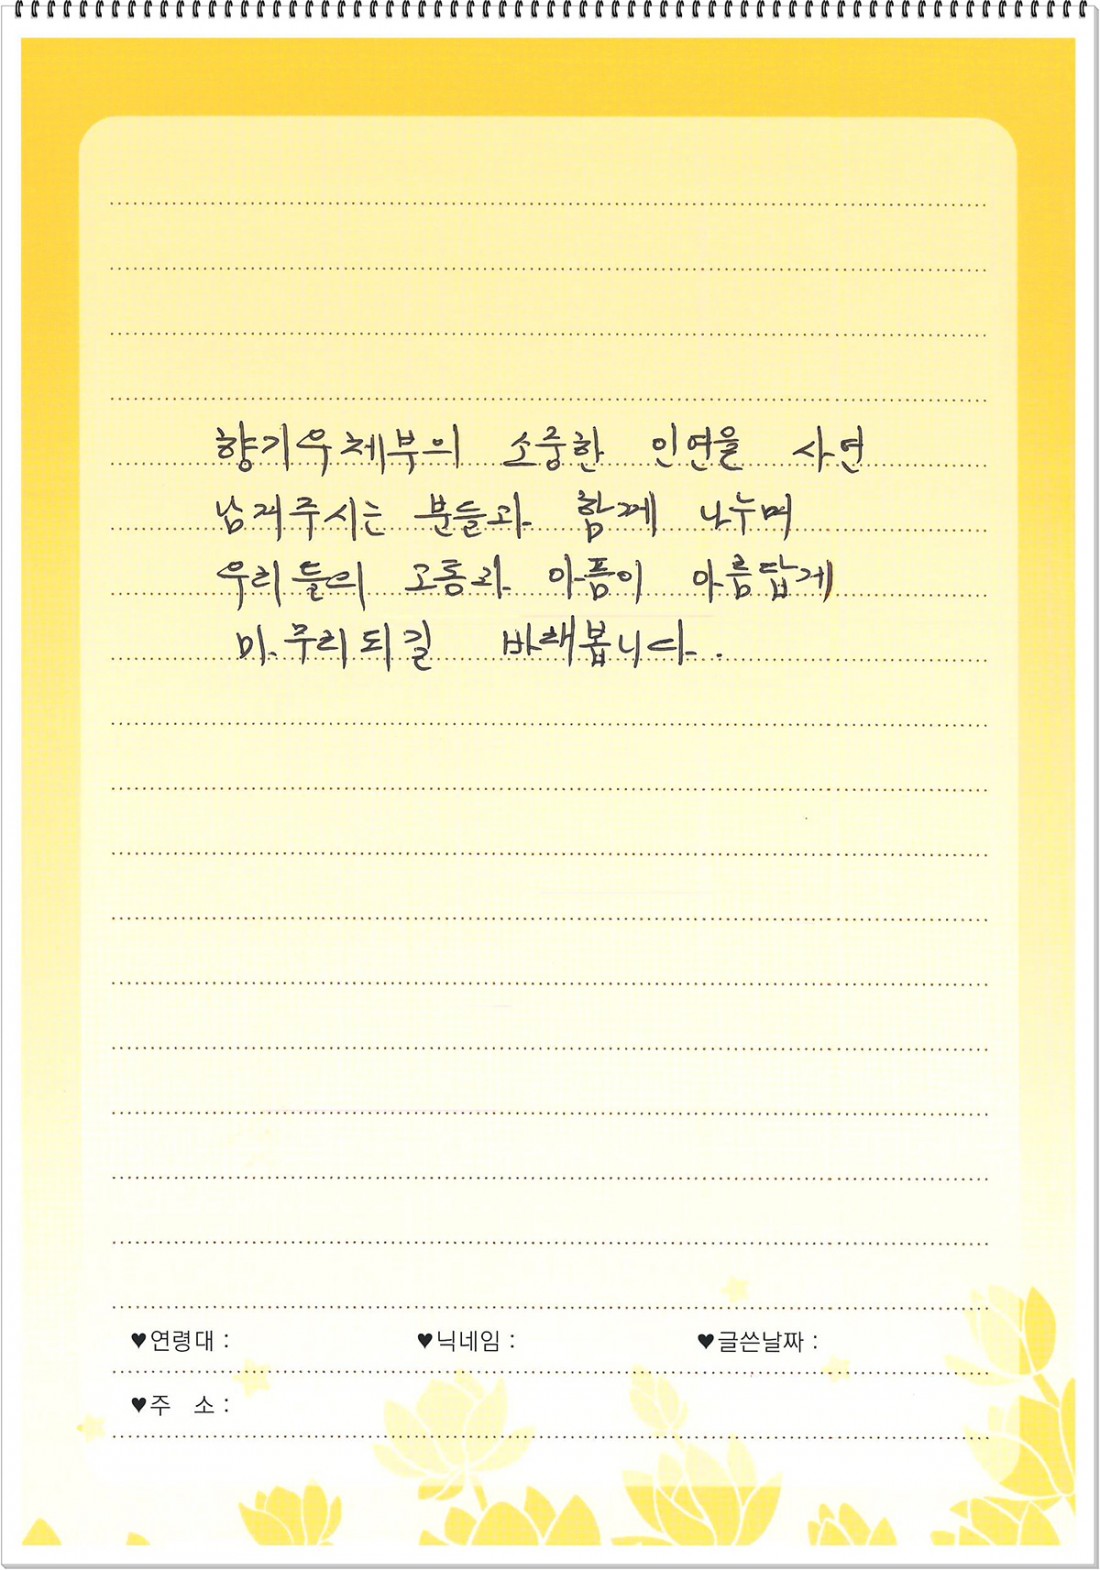 향기우체부의 소중한 인연을 사연
남겨주시는 분들과 함께 나누며
우리들의 고통과 아픔이 아름답게
마무리되길 바래봅니다.
♥연령대 : ♥닉네임 : ♥글쓴날짜 :
♥주 소 :